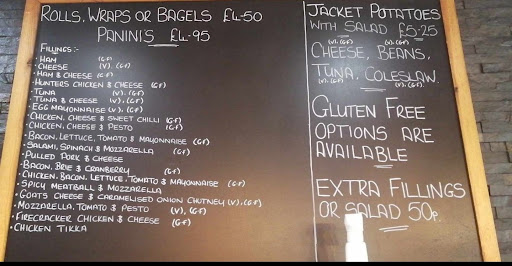 ROLLS, WRAPS OR BAGELS £4-50
PANINIS £4-95
FILLINGS:-
· HAM (GF)
· CHEESE (V). (GF)
· HAM & CHEESE (GF)
· HUNTERS CHICKEN & CHEESE (GF)
· TUNA (V). (GF)
· TUNA & CHEESE (V). (GF)
· EGG MAYONNAISE (V). (GF)
· CHICKEN, CHEESE & SWEET CHILLI (GF)
· CHICKEN, CHEESE & PESTO (GF)
· BACON, LETTUCE, TOMATO & MAYONNAISE (GF)
· SALAMI, SPINACH & MOZZARELLA (GF)
· PULLED PORK & CHEESE
· BACON, BRIE & CRANBERRY (GF)
· CHICKEN, BACON, LETTUCE, TOMATO & MAYONNAISE (GF)
· SPICY MEATBALL & MOZZARELLA
· GOATS CHEESE & CARAMELISED ONION CHUTNEY (V). (GF)
· MOZZARELLA, TOMATO & PESTO (V), (GF)
· FIRECRACKER CHICKEN & CHEESE (GF)
· CHICKEN TIKKA
JACKET POTATOES
WITH SALAD £5-25
(V). (GF) (V). (GF)
CHEESE, BEANS,
TUNA, COLESLAW
(V). (GF) (V). (GF)
GLUTEN FREE
OPTIONS ARE
AVAILABLE
EXTRA FILLINGS
OR SALAD 50p.